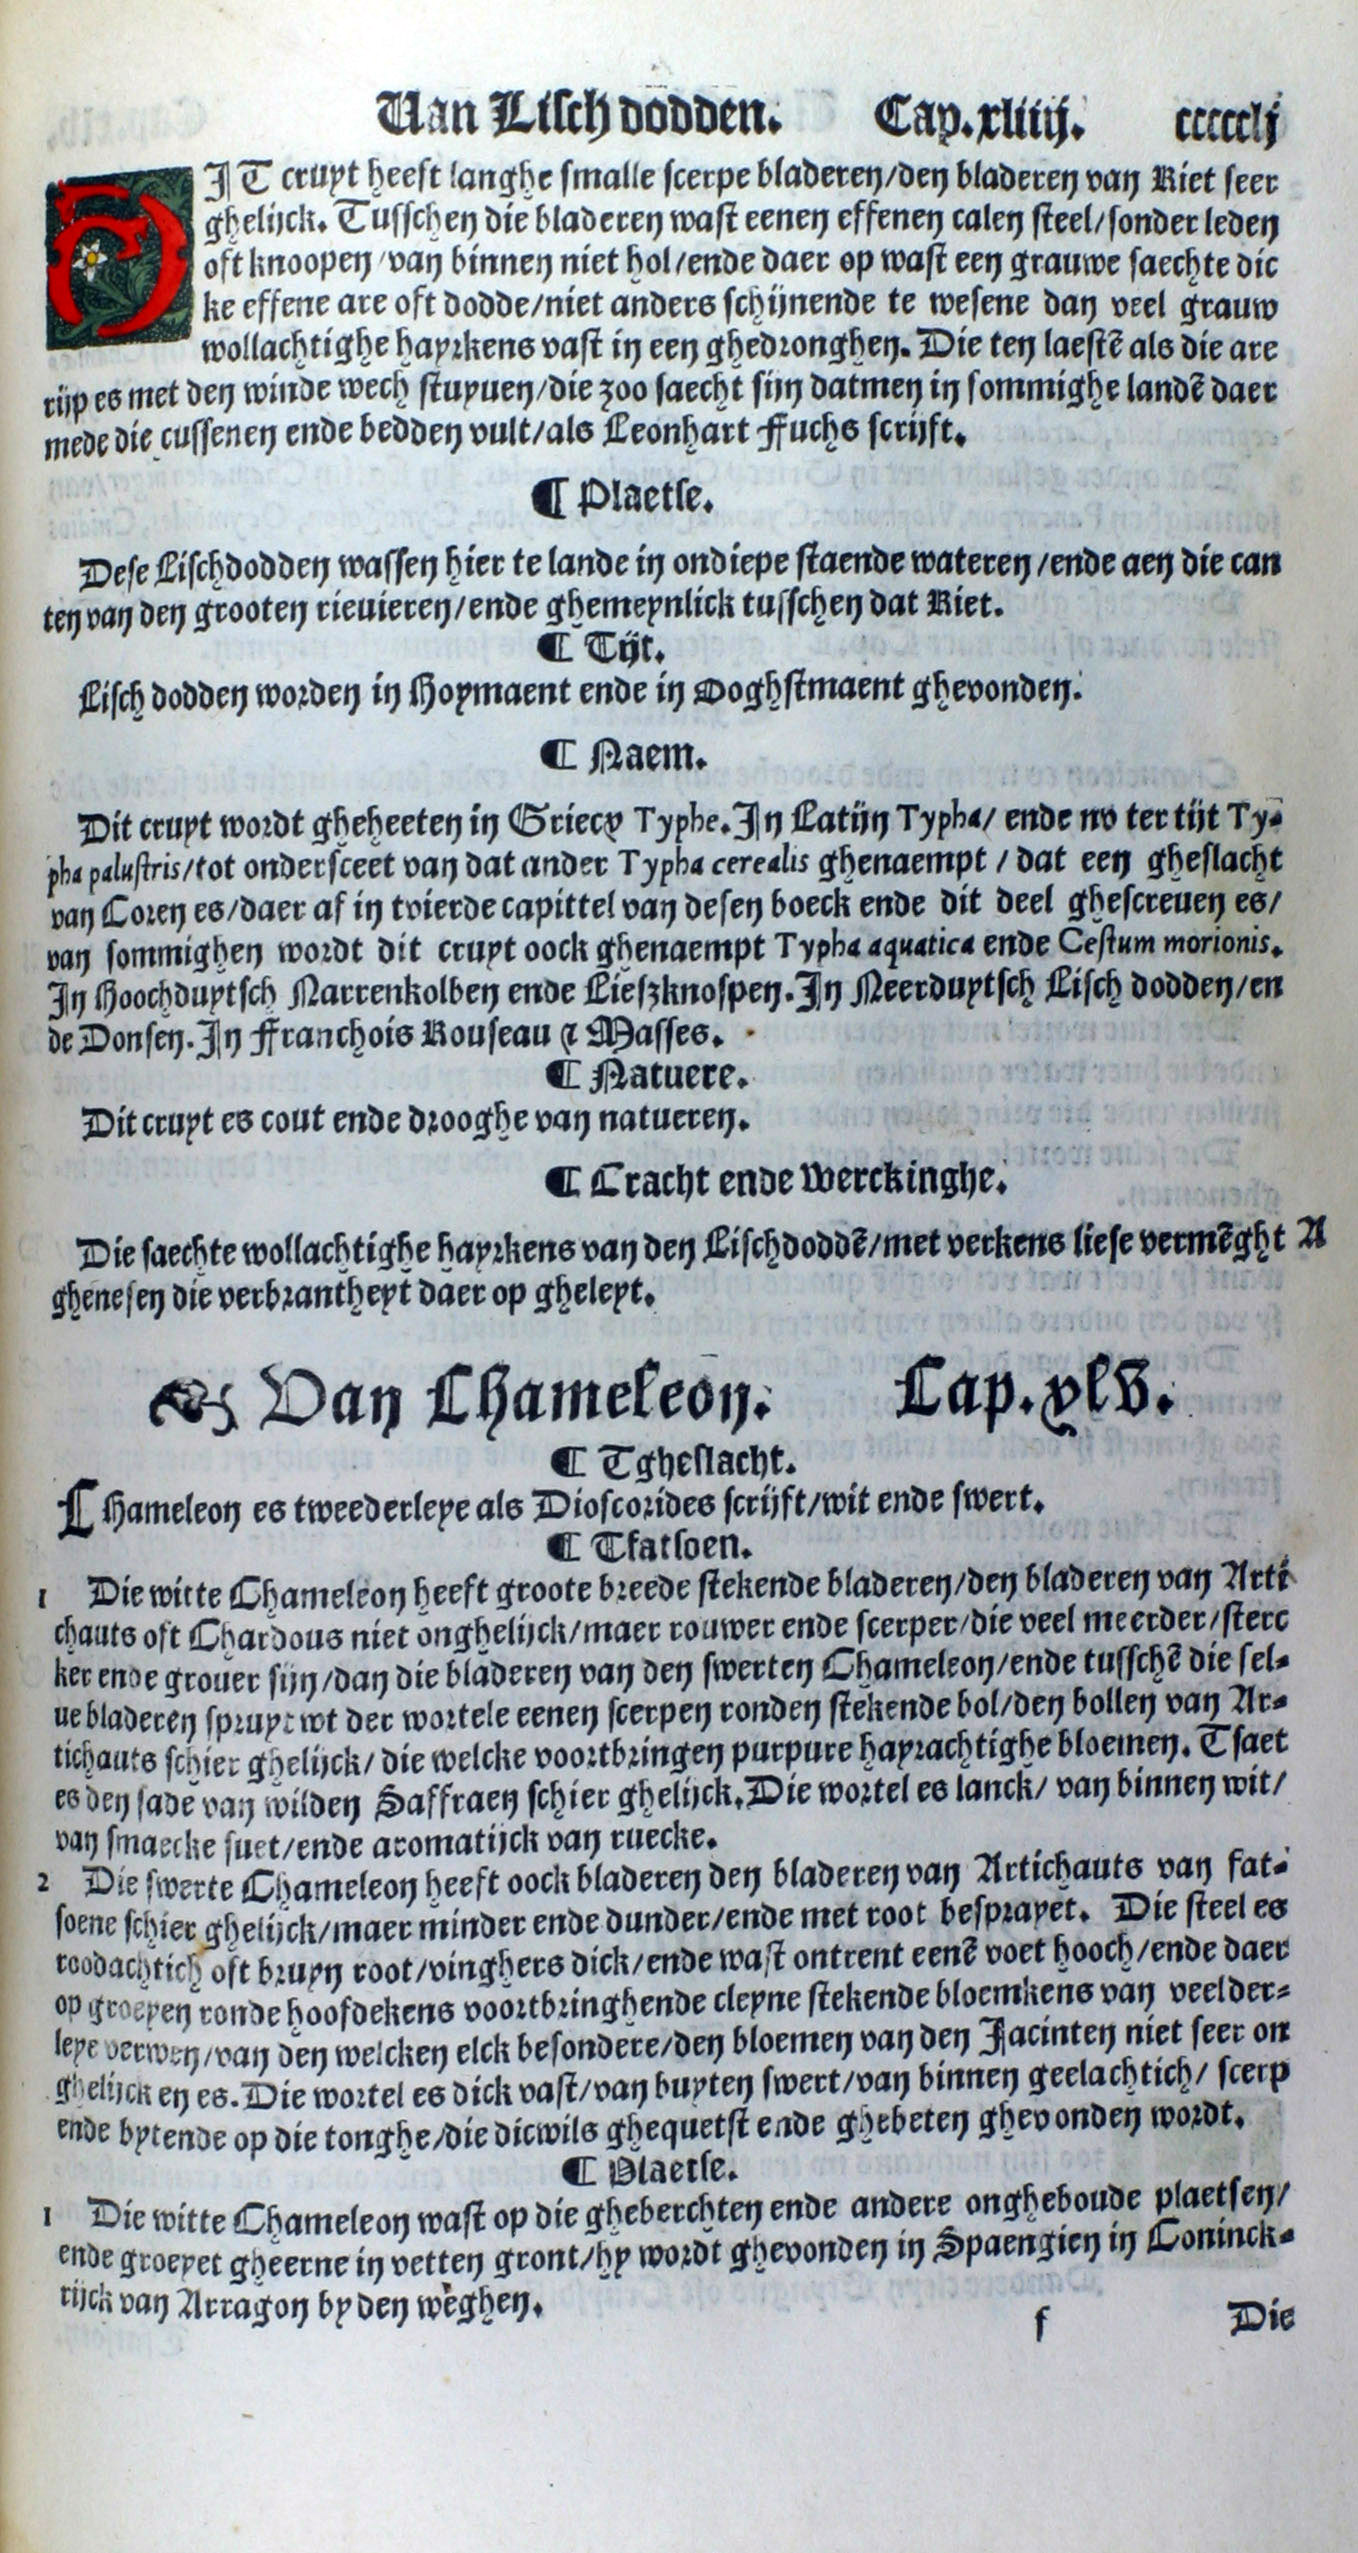 Van Lisch dodden. Cap. xliiij. ccccclj
DIT cruyt heeft langhe smalle scerpe bladeren/den bladeren van Riet seer
ghelijck. Tusschen die bladeren wast eenen effenen calen steel/sonder leden
oft knoopen/van binnen niet hol/ende daer op wast een grauwe saechte dic
ke effene are oft dodde/niet anders schijnende te wesene dan veel grauw
wollachtighe hayrkens vast in een ghedronghen. Die ten laestē als die are
rijp es met den winde wech stuyuen/die zoo saecht sijn datmen in sommighe landē daer
mede die cussenen ende bedden vult/als Leonhart Fuchs scrijft.
¶ Plaetse.
Dese Lischdodden wassen hier te lande in ondiepe staende wateren/ende aen die can
ten van den grooten rieuieren/ende ghemeynlick tusschen dat Riet.
¶ Tijt.
Lisch dodden worden in Hoymaent ende in Ooghstmaent ghevonden.
¶ Naem.
Dit cruyt wordt gheheeten in Griecx Typhe. In Latijn Typha/ ende nv ter tijt Ty-
pha palustris/tot ondersceet van dat ander Typha cerealis ghenaempt / dat een gheslacht
van Coren es/daer af in tvierde capittel van desen boeck ende dit deel ghescreuen es/
van sommighen wordt dit cruyt oock ghenaempt Typha aquatica ende Cestum morionis.
In Hoochduytsch Narrenkolben ende Lieszknospen. In Neerduytsch Lisch dodden/en
de Donsen. In Franchois Rouseau & Masses.
¶ Natuere.
Dit cruyt es cout ende drooghe van natueren.
¶ Cracht ende Werckinghe.
Die saechte wollachtighe hayrkens van den Lischdoddē/met verkens liese vermēght A
ghenesen die verbrantheyt daer op gheleyt.
Van Chameleon. Cap. xlv.
¶ Tgheslacht.
CHameleon es tweederleye als Dioscorides scrijft/wit ende swert.
¶ Tfatsoen.
1 Die witte Chameleon heeft groote breede stekende bladeren/den bladeren van Arti
chauts oft Chardous niet onghelijck/maer rouwer ende scerper/die veel meerder/sterc
ker ende grouer sijn/dan die bladeren van den swerten Chameleon/ende tusschē die sel-
ue bladeren spruyt wt der wortele eenen scerpen ronden stekende bol/den bollen van Ar-
tichauts schier ghelijck/ die welcke voortbringen purpure hayrachtighe bloemen. Tsaet
es den sade van wilden Saffraen schier ghelijck. Die wortel es lanck/ van binnen wit/
van smaecke suet/ende aromatijck van ruecke.
2 Die swerte Chameleon heeft oock bladeren den bladeren van Artichauts van fat-
soene schier ghelijck/maer minder ende dunder/ende met root besprayet. Die steel es
roodachtich oft bruyn root/vinghers dick/ende wast ontrent eenē voet hooch/ende daer
op groeyen ronde hoofdekens voortbringhende cleyne stekende bloemkens van veelder-
leye verwen/van den welcken elck besondere/den bloemen van den Jacinten niet seer on
ghelijck en es. Die wortel es dick vast/van buyten swert/van binnen geelachtich/ scerp
ende bytende op die tonghe/die dicwils ghequetst ende ghebeten ghevonden wordt.
¶ Plaetse.
1 Die witte Chameleon wast op die gheberchten ende andere ongheboude plaetsen/
ende groeyet gheerne in vetten gront/hy wordt ghevonden in Spaengien in Coninck-
rijck van Arragon by den weghen.
f Die